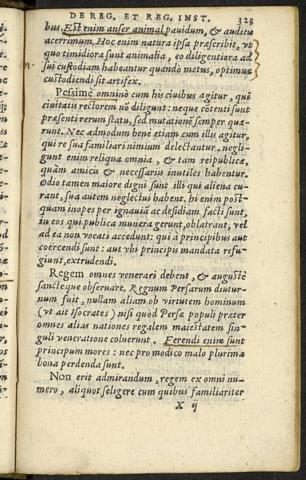 DE REG. ET REG. INST. 323
bus. Est enim anser animal pauidum, & auditu
acerrimum. Hoc enim natura ipsa præscribit, vt
quo timidiora sunt animalia, eo diligentiora ad
sui custodiam habeantur quando metus, optimus
custodiendi sit artifex.
Pessimè omninò cum his ciuibus agitur, qui
ciuitatis rectorem nō diligunt: neque cōtenti sunt
præsenti rerum statu, sed mutationē semper quæ-
runt. Nec admodum benè etiam cum illis agitur,
qui re sua familiari nimium delectantur. negli-
gunt enim reliqua omnia, & tam reipublicæ,
quàm amicis & necessariis inutiles habentur.
Odio tamen maiore digni sunt illi qui aliena cu-
rant, sua autem neglectui habent. hi enim post-
quam inopes per ignauiā ac desidiam facti sunt,
in eos qui publica munera gerunt, oblatrant, vel
ad ea non vocati accedunt: qui à principibus aut
coërcendi sunt: aut vbi principis mandata refu-
giunt, extrudendi.
Regem omnes venerari debent, & augustè
sanctè que obseruare. Regnum Persarum diutur-
num fuit, nullam aliam ob virtutem hominum
(vt ait Isocrates) nisi quòd Persæ populi præter
omnes alias nationes regalem maiestatem sin-
guli veneratione coluerunt. Ferendi enim sunt
principum mores: nec pro modico malo plurima
bona perdenda sunt.
Non erit admirandum, regem ex omni nu-
mero, aliquot seligere cum quibus familiariter
X ij